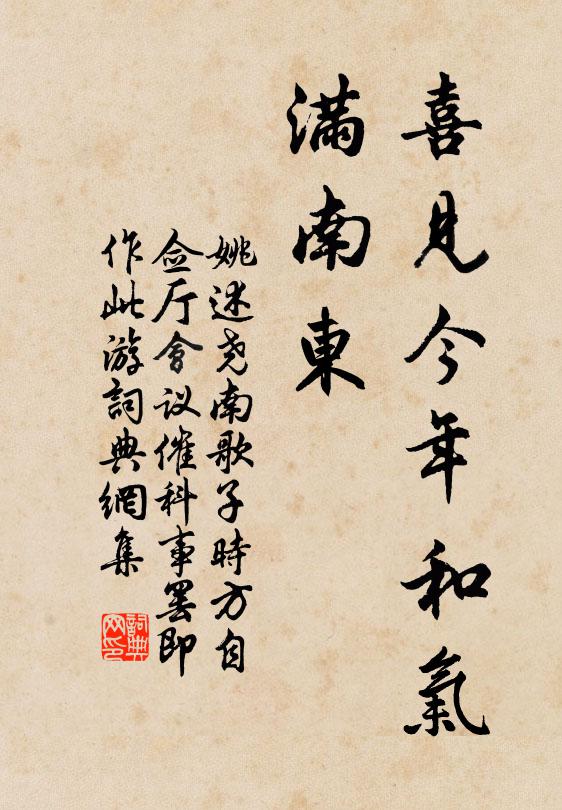 喜見今年和氣
滿南東
姚述尧南歌子時方自
佥厅會议催科事罢即
作此游詞典網集
詞典
网印